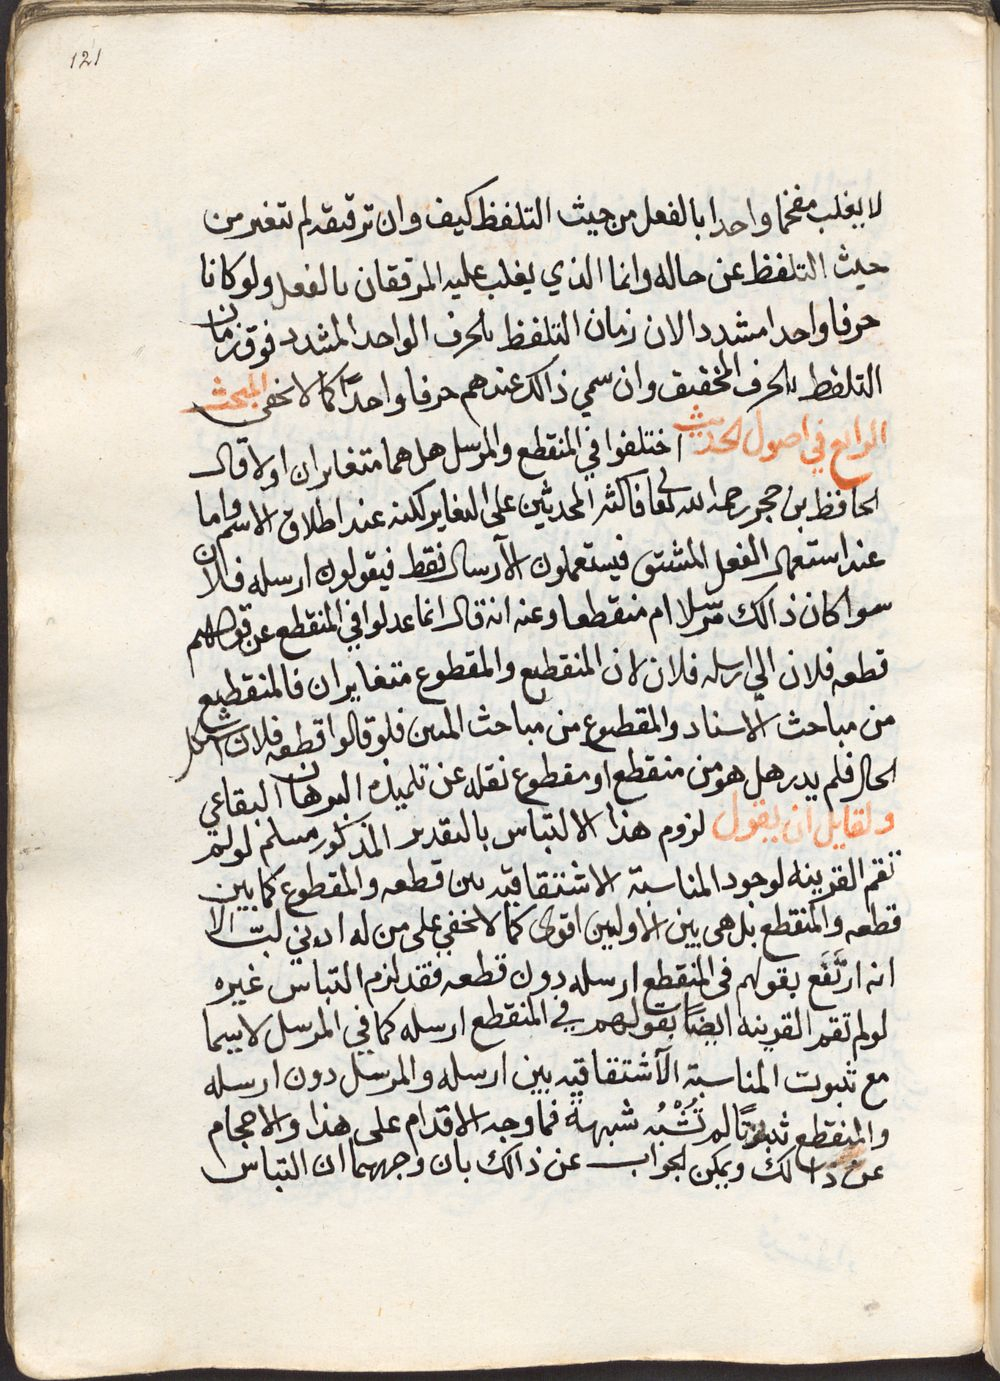 121
لا يغلب مفخما واحدا بالفعل من حيث التلفظ كيف وان ترقيقه لم تتغير من
حيث التلفظ عن حاله وانما الذي يغلب عليه المرققان بالفعل ولو كانا
حرفا واحدا مشددا لان زمان التلفظ بالحرف الواحد المشدد فوق زمان
التلفظ بالحرف المخفيف وان سمي ذالك عندهم حرفا واحدًا كما لا يخفى المبحث
الرابع في اصول الحديث اختلفوا في المنقطع والمرسل هل هما متغايران اولا قال
الحافظ بن حجر رحمه الله تعا فاكثر المحدثين على التغاير لكنه عند اطلاق الاسم واما
عند استعمال الفعل المشتق فيستعملون الآرسال فقط فيقولون ارسله فلان
سوا كان ذالك مرسلا ام منقطعا وعنه انه قال انما عدلوا في المنقطع عن قولهم
قطعه فلان الي ارسله فلان لان المنقطع والمقطوع متغايران فالمنقطع
من مباحث الاسناد والمقطوع من مباحث المتن فلو قالوا قطعه فلان اشكل
الحال فلم يدر هل هو من منقطع او مقطوع نقله عن تلميذه البرهان البقاعي
ولقايل ان يقول لزوم هذا الالتباس بالتقدير المذكور مسلم لو لم
تقم القرينه لوجود المناسبة الاشتقاقيه بين قطعه والمقطوع كما بين
قطعه والمنقطع بل هى بين الاولين اقوى كما لا يخفي على من له ادني لب الا
انه ارتَفَع بقولهم فى المنقطع ارسله دون قطعه فقد لزم التباس غيره
لو لم تقم القرينه ايضًا بقولهم في المنقطع ارسله كما في المرسل لا سيما
مع ثبوت المناسبة الآشتقاقيه بين ارسله والمرسل دون ارسله
والمنقطع ثبوتًا لم تَشُبْهُ شبهة فما وجه الاقدام على هذا والاحجام
عن ذالك ويمكن الجواب عن ذالك بان وجههما ان التباس